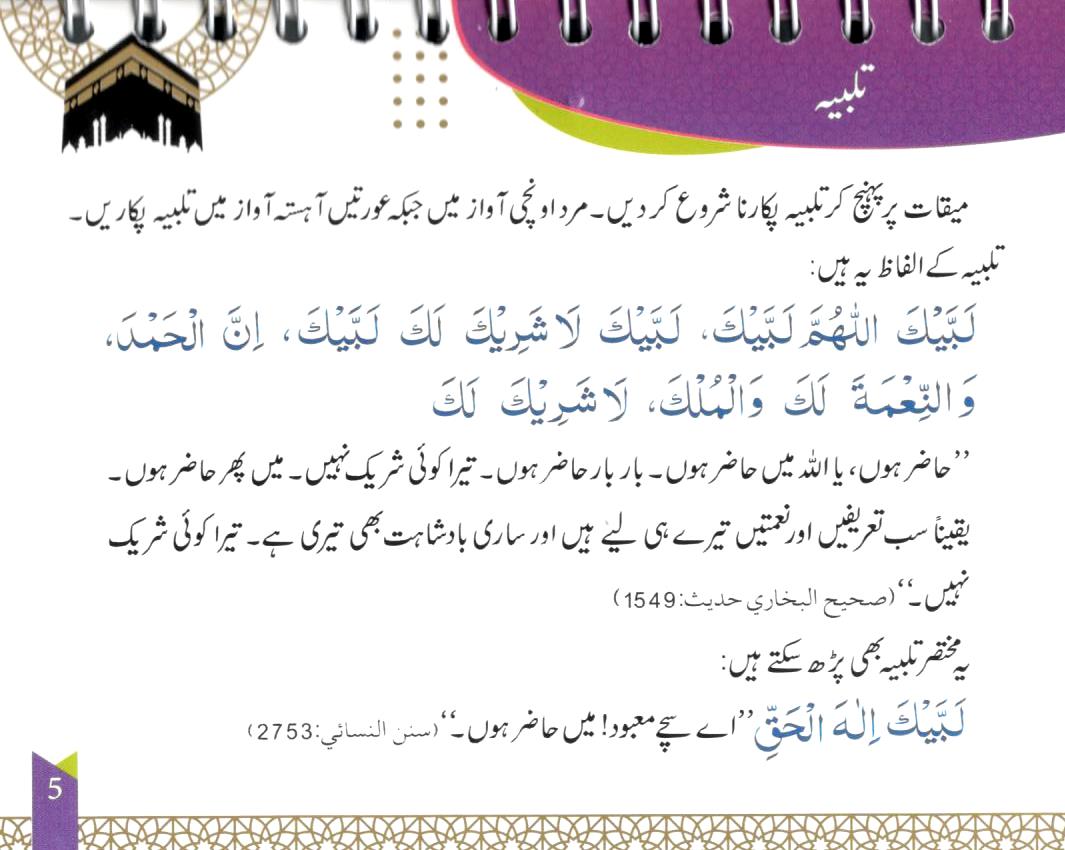 تلبیہ
میقات پر پہنچ کر تلبیہ پکارنا شروع کر دیں۔ مرد اونچی آواز میں جبکہ عورتیں آہستہ آواز میں تلبیہ پکاریں۔
تلبیہ کے الفاظ یہ ہیں:
لَبَّيْكَ اللّٰهُمَّ لَبَّيْكَ، لَبَّيْكَ لَا شَرِيْكَ لَكَ لَبَّيْكَ، اِنَّ الْحَمْدَ،
وَالنِّعْمَةَ لَكَ وَالْمُلْكَ، لَا شَرِيْكَ لَكَ
’’حاضر ہوں، یا اللہ میں حاضر ہوں۔ بار بار حاضر ہوں۔ تیرا کوئی شریک نہیں۔ میں پھر حاضر ہوں۔
یقیناً سب تعریفیں اور نعمتیں تیرے ہی لیے ہیں اور ساری بادشاہت بھی تیری ہے۔ تیرا کوئی شریک
نہیں۔‘‘ (صحيح البخاري حديث:1549)
یہ مختصر تلبیہ بھی پڑھ سکتے ہیں:
لَبَّيْكَ اِلٰهَ الْحَقِّ ’’اے سچے معبود! میں حاضر ہوں۔‘‘ (سنن النسائي:2753)
5